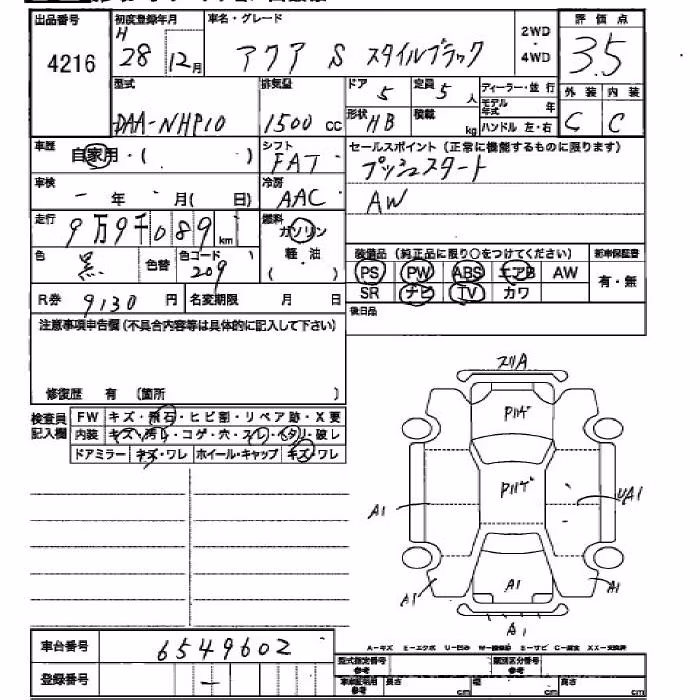 出品番号 初度登録年月 車名・グレード 2WD・4WD 評価点
4216 H 28 12月 アクア S スタイルブラック 3.5
型式 排気量 ドア 5 定員 5人 ディーラー・並行 外装 内装
DAA-NHP10 1500 cc 形状 HB 積載 kg モデル年式 年 C C
ハンドル 左・右
車歴 自家用・( ) シフト FAT セールスポイント (正常に機能するものに限ります)
プッシュスタート
車検 ー 年 月( 日) 冷房 AAC AW
走行 9万9千089 km 燃料 ガソリン
色 黒 色替 色コード 209 軽・油 ( ) 装備品 (純正品に限り○をつけてください) 新車保証書
PS PW ABS エアB AW 有・無
R券 9130 円 名変期限 月 日 SR ナビ TV カワ
注意事項申告欄(不具合内容等は具体的に記入して下さい) 後日品
修復歴 有 〔箇所 〕
検査員記入欄 FW キズ・飛石・ヒビ割・リペア跡・X要
内装 キズ・汚レ・コゲ・穴・スレ・
ドアミラー キズ・ワレ ホイール・キャップ キズ・ワレ
スリA
Pハゲ
Pハゲ
A1 UA1
A1 A1 A1
A1
車台番号 6549602
A-キズ
登録番号 ー 型式指定番号 参考 類別区分番号 参考
長さ cm 幅 cm 高さ cm